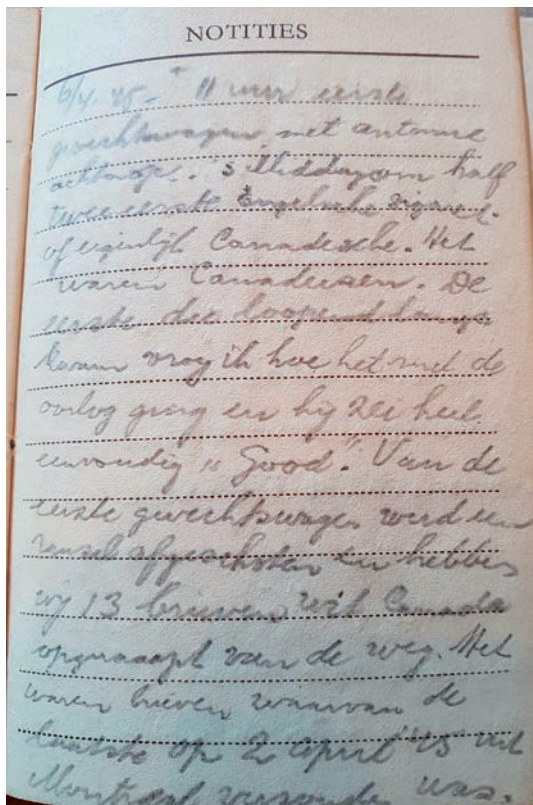 NOTITIES
6/4.45 - 11 uur eerste
gevechtswagen met antenne
achterop. 's Middags om half
twee eerste Engelsche
of eigenlijk Canadesche. Het
waren Canadeezen. De
eerste die loopend langs
kwam vroeg ik hoe het met de
oorlog ging en hij zei heel
eenvoudig „Good". Van de
eerste gevechtswagen werd een
ransel afgeschoten en hebben
wij 13 brieven uit Canada
opgeraapt van de weg. Het
waren brieven waarvan de
laatste op 2 april '45 uit
Montreal verzonden was.